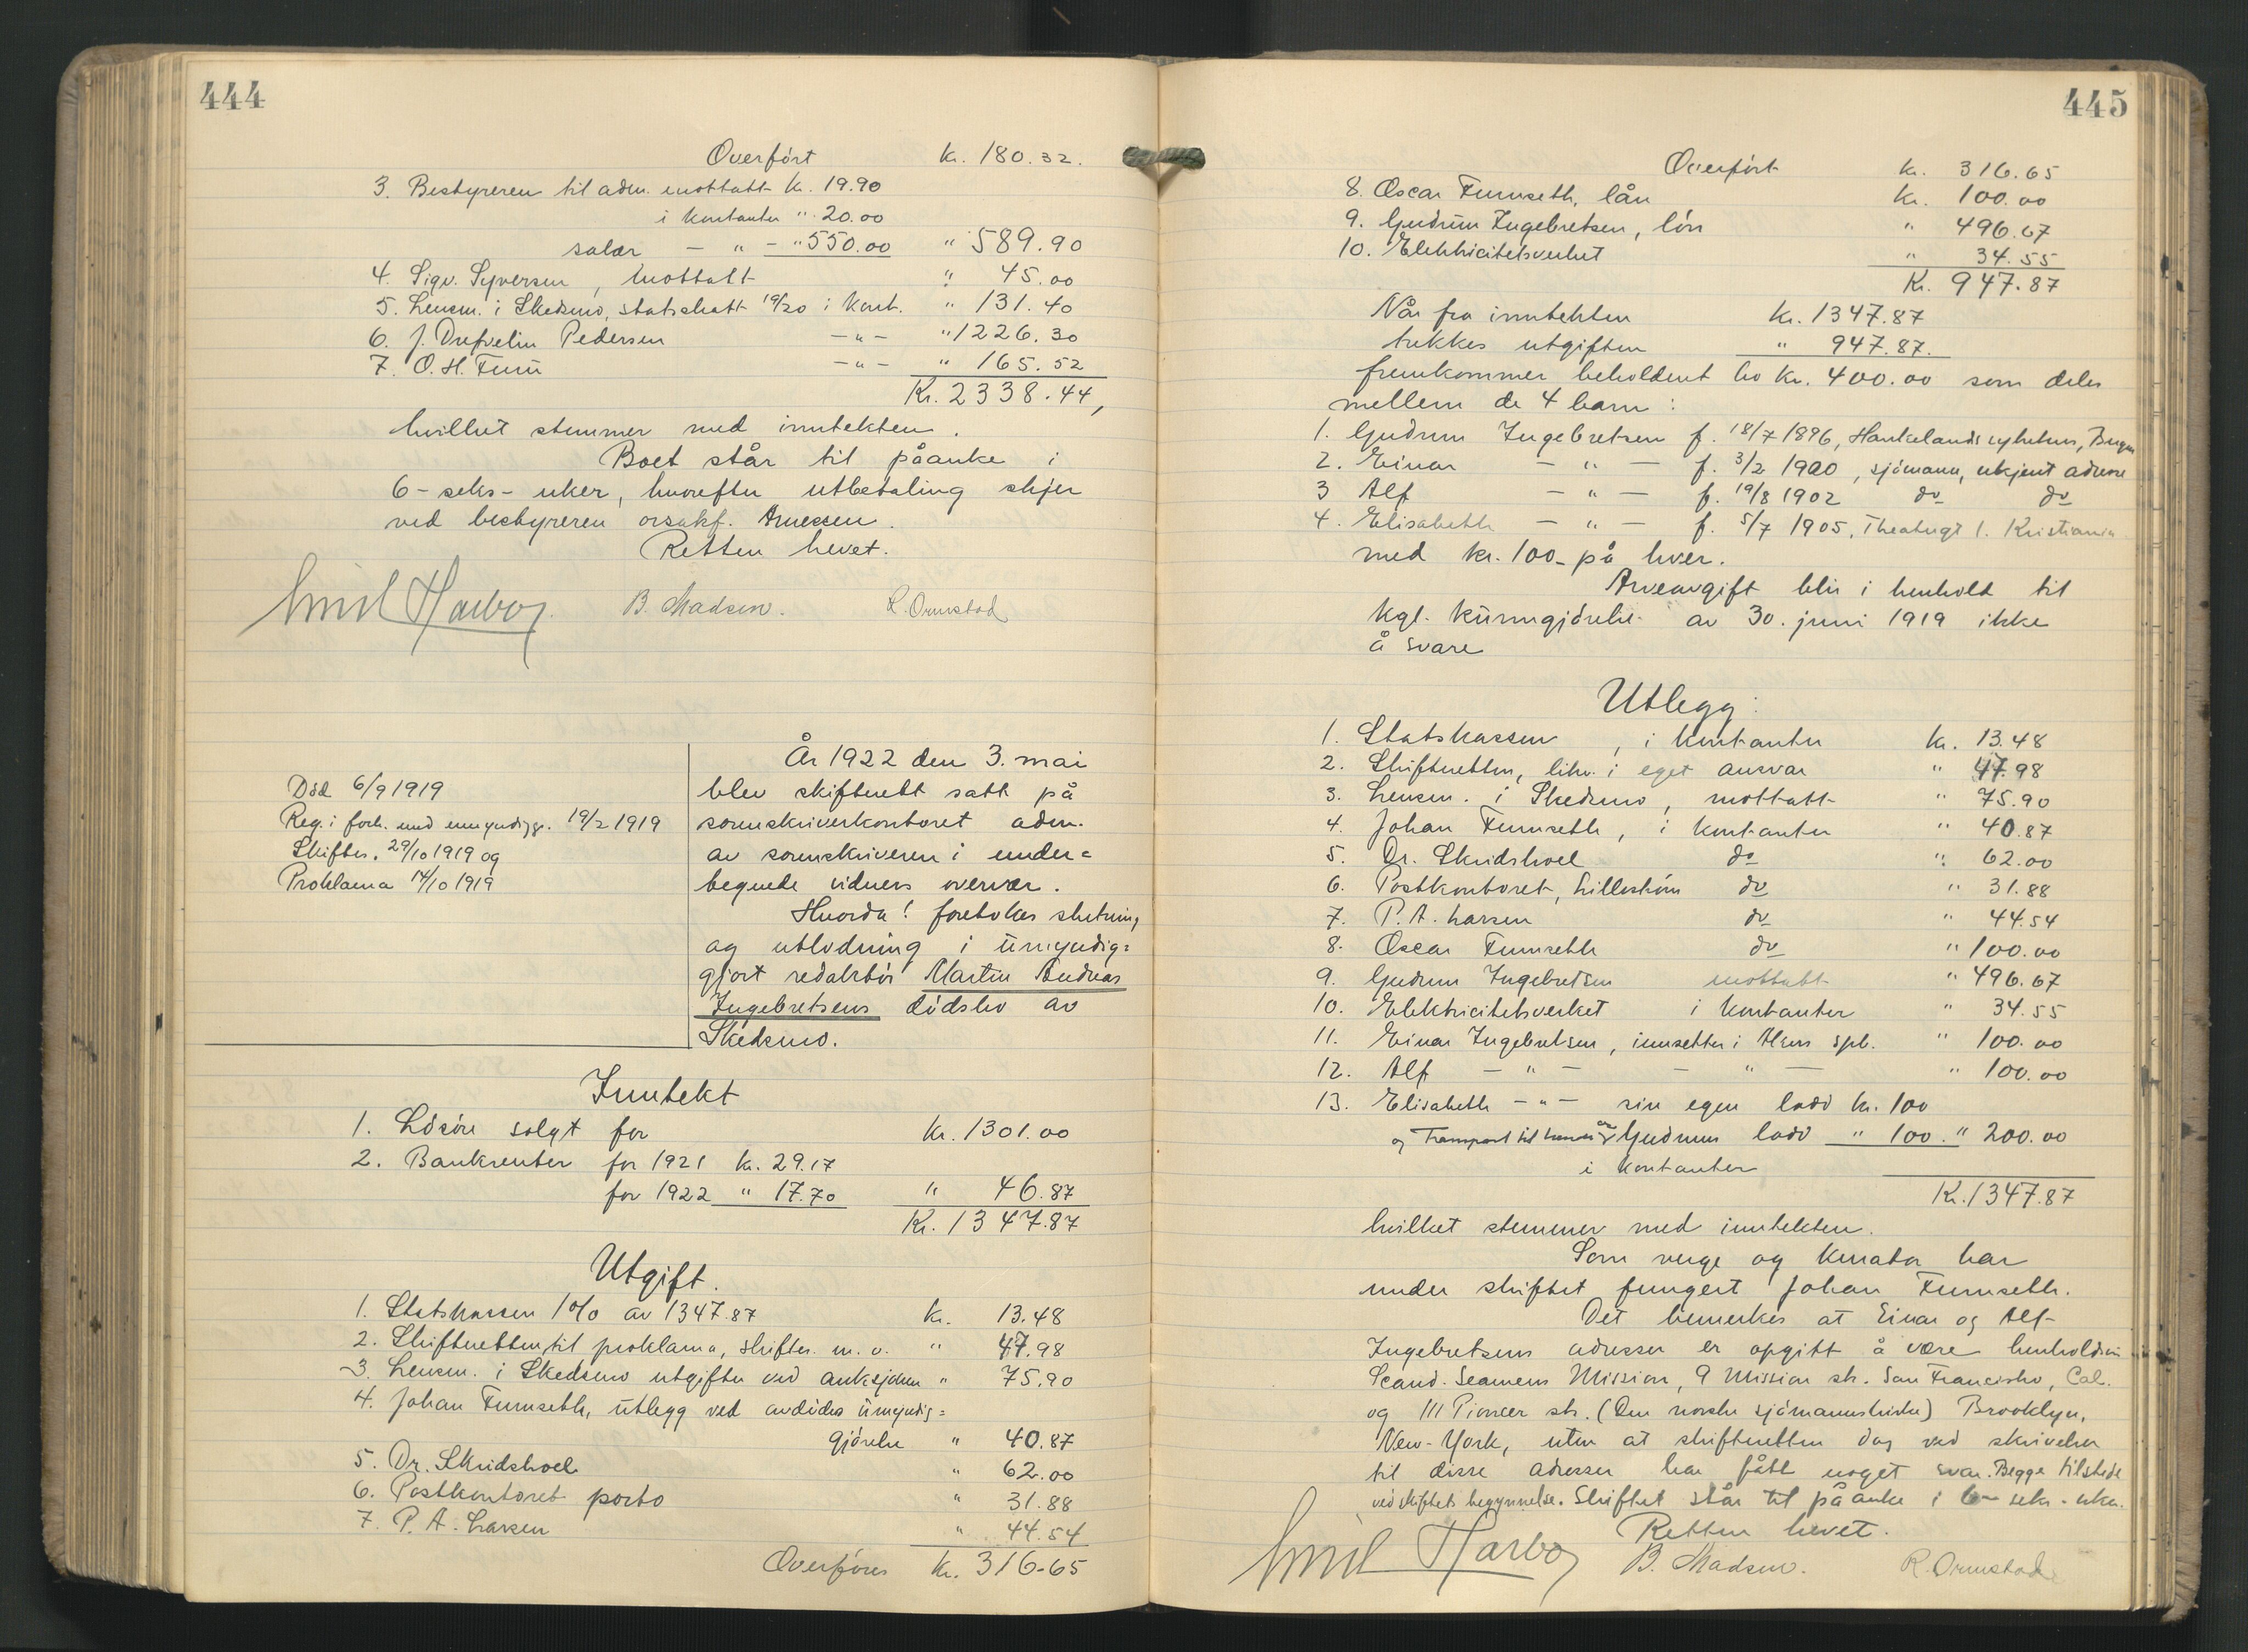 444
Overført Kr. 180.32.
3. Bestyreren til adm. mottatt Kr. 19.90
i kontanter " 20.00
salær - " - " 550.00 " 589.90
4. Sigv. Syversen, mottatt " 45.00
5. Lensm. i Skedsmo, statsskatt 19/20 i kont. " 131.40
6. J. Drefvelin Pedersen - " - " 1226.30
7. O. H. Furu - " - " 165.52
Kr. 2338.44,
hvilket stemmer med inntekten.
Boet står til påanke i
6 - seks - uker, hvorefter utbetaling skjer
ved bestyreren orsakf. Arnessen.
Retten hevet.
Emil Harboe. B. Madsen. R. Ormstad
Död 6/9 1919
Reg. i forb. med umyndiggj. 19/2 1919
Skifter. 29/10 1919 og
Proklama 14/10 1919
År 1922 den 3. mai
blev skifterett satt på
sorenskriverkontoret adm.
av sorenskriveren i under=
tegnede vidners overvær.
Hvorda! foretokes slutning
og utlodning i ümyndig=
gjort redaktör Martin Andreas
Ingebretsens dödsbo av
Skedsmo.
Inntekt
1. Lösöre solgt for Kr. 1301.00
2. Bankrenter for 1921 kr. 29.17
for 1922 " 17.70 " 46.87
Kr. 1347.87
Utgift.
1. Statskassen 1% av 1347.87 Kr. 13.48
2. Skifteretten til proklama, skifter. m. v. " 47.98
3. Lensm. i Skedsmo utgifter ved auksjonen " 75.90
4. Johan Furuseth, ütlegg ved avdödes ümyndig=
gjörelse " 40.87
5. Dr. Skridshoel " 62.00
6. Postkontoret porto " 31.88
7. P. A. Larsen " 44.54
Overføres Kr. 316.65
445
Overfört Kr. 316.65
8. Oscar Furuseth, lån Kr. 100.00
9. Gudrün Ingebretsen, lön " 496.67
10. Elektricitetsverket " 34.55
Kr. 947.87
Når fra inntekten Kr. 1347.87
trekkes utgiften " 947.87.
fremkommer beholdent bo Kr. 400.00 som deles
mellem de 4 barn:
1. Gudrun Ingebretsen f. 18/7 1896, Haukelands sykehus, Bergen
2. Einar - " - f. 3/2 1900, sjömann, ukjent adresse
3 Alf - " - f. 19/8 1902 do do
4. Elisabeth - " - f. 5/7 1905, Theatergt 1. Kristiania
med kr. 100- på hver.
Arveavgift blir i henhold til
kgl. künngjörelse av 30. juni 1919 ikke
å svare
Utlegg:
1. Statskassen, i kontanter Kr. 13.48
2. Skifteretten, likv. i eget ansvar " 47.98
3. Lensm. i Skedsmo, mottatt " 75.90
4. Johan Furuseth, i kontanter " 40.87
5. Dr. Skridshoel do " 62.00
6. Postkontoret, Lilleström do " 31.88
7. P. A. Larsen do " 44.54
8. Oscar Furuseth do " 100.00
9. Gudrun Ingebretsen mottatt " 496.67
10. Elektricitetsverket i kontanter " 34.55
11. Einar Ingebretsen, innsettes i Akers spb. " 100.00
12. Alf - " - - " - " 100.00
13. Elisabeth - " - sin egen lodd kr. 100
og Transport til henne av Gudruns lodd " 100. " 200.00
i kontanter
Kr. 1347.87
hvilket stemmer med inntekten.
Som verge og kurator har
under skiftet fungert Johan Furuseth.
Det bemerkes at Einar og Alf
Ingebretsens adresser er opgitt å være henholdsvis
Scand. Seamens Mission, 9 Mission str. San Francisko, Cal.
og 111 Pioneer str. (Den norske sjömannskirke) Brooklyn,
New-York, uten at skifteretten dog ved skrivelser
til disse adresser har fått noget svar. Begge tilstede
ved skiftets begynnelse. Skiftet står til påanke i 6 - seks - uker.
Retten hevet.
Emil Harboe B. Madsen. R. Ormstad